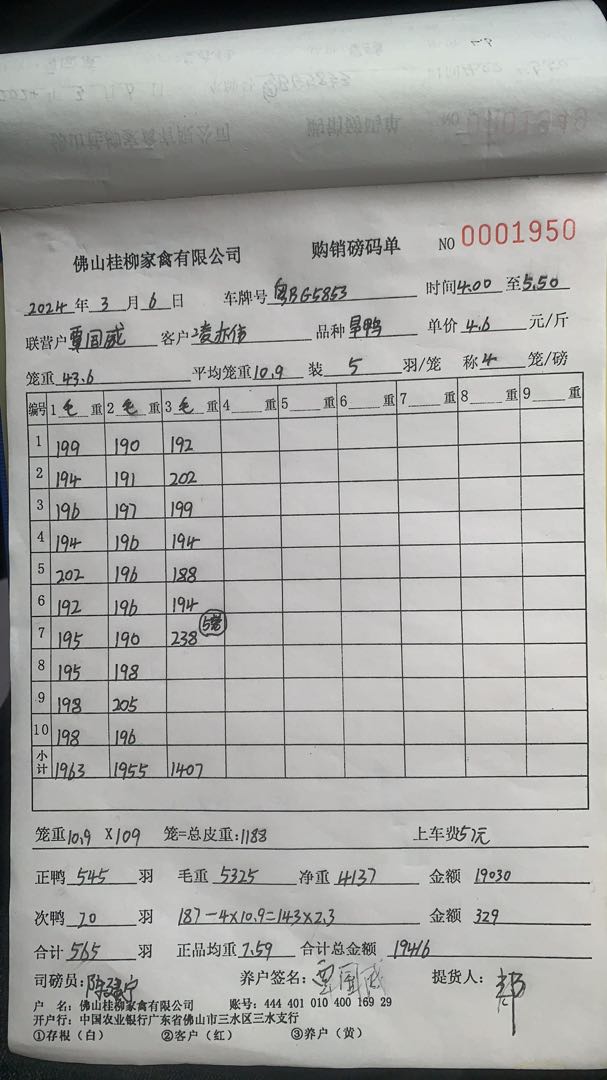 佛山桂柳家禽有限公司 购销磅码单 NO 0001950
2024年3月6日 车牌号 粤BG5853 时间4.00至5.50
联营户 覃国威 客户 凌亦伟 品种 旱鸭 单价 4.6 元/斤
笼重 43.6 平均笼重10.9 装 5 羽/笼 称 4 笼/磅
编号 1 毛 重 2 毛 重 3 毛 重 4 重 5 重 6 重 7 重 8 重 9 重
1 199 190 192
2 194 191 202
3 196 197 199
4 194 196 194
5 202 196 188
6 192 196 194
7 195 190 238 5笼
8 195 198
9 198 205
10 198 196
小计 1963 1955 1407
笼重10.9 X 109 笼=总皮重:1188 上车费57元
正鸭 545 羽 毛重 5325 净重 4137 金额 19030
次鸭 20 羽 187-4×10.9=143×2.3 金额 329
合计 565 羽 正品均重 7.59 合计总金额 19416
司磅员: 养户签名: 覃国威 提货人:
户 名: 佛山桂柳家禽有限公司 账号: 444 401 010 400 169 29
开户行: 中国农业银行广东省佛山市三水区三水支行
①存根(白) ②客户(红) ③养户(黄)